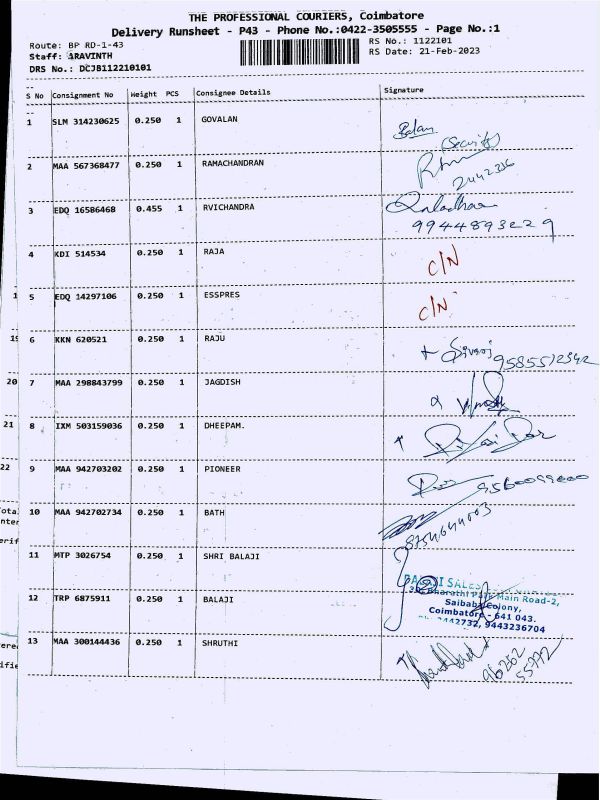 THE PROFESSIONAL COURIERS, Coimbatore
Delivery Runsheet - P43 - Phone No.:0422-3505555 - Page No.:1
Route: BP RD-1-43 RS No.: 1122101
Staff: ARAVINTH RS Date: 21-Feb-2023
DRS No.: DCJB112210101
S No Consignment No Weight PCS Consignee Details Signature
1 SLM 314230625 0.250 1 GOVALAN
(Security)
2 MAA 567368477 0.250 1 RAMACHANDRAN
2442336
3 EDQ 16586468 0.455 1 RVICHANDRA
9944893229
4 KDI 514534 0.250 1 RAJA C/N
5 EDQ 14297106 0.250 1 ESSPRES C/N
6 KKN 620521 0.250 1 RAJU
9585512342
7 MAA 298843799 0.250 1 JAGDISH
8 IXM 503159036 0.250 1 DHEEPAM.
9 MAA 942703202 0.250 1 PIONEER
10 MAA 942702734 0.250 1 BATH
8754644003
11 MTP 3026754 0.250 1 SHRI BALAJI
BALAJI SALES
Bharathi Park Main Road-2,
12 TRP 6875911 0.250 1 BALAJI Saibaba Colony,
Coimbatore - 641 043.
2442732, 9443236704
13 MAA 300144436 0.250 1 SHRUTHI
96262
55772
20
21
22